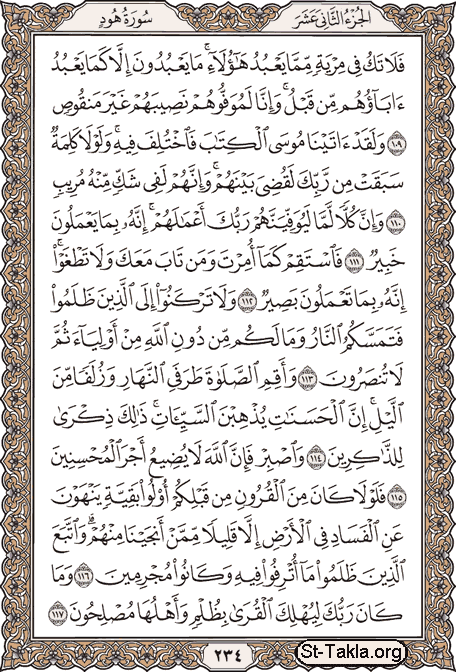 الجزء الثاني عشر
سورة هود
فَلَا تَكُ فِى مِرْيَةٍ مِّمَّا يَعْبُدُ هَٰٓؤُلَآءِ ۚ مَا يَعْبُدُونَ إِلَّا كَمَا يَعْبُدُ
ءَابَآؤُهُم مِّن قَبْلُ ۚ وَإِنَّا لَمُوَفُّوهُمْ نَصِيبَهُمْ غَيْرَ مَنقُوصٍ
١٠٩ وَلَقَدْ ءَاتَيْنَا مُوسَى ٱلْكِتَٰبَ فَٱخْتُلِفَ فِيهِ ۚ وَلَوْلَا كَلِمَةٌ
سَبَقَتْ مِن رَّبِّكَ لَقُضِىَ بَيْنَهُمْ ۚ وَإِنَّهُمْ لَفِى شَكٍّ مِّنْهُ مُرِيبٍ
١١٠ وَإِنَّ كُلًّا لَّمَّا لَيُوَفِّيَنَّهُمْ رَبُّكَ أَعْمَٰلَهُمْ ۚ إِنَّهُۥ بِمَا يَعْمَلُونَ
خَبِيرٌ ١١١ فَٱسْتَقِمْ كَمَآ أُمِرْتَ وَمَن تَابَ مَعَكَ وَلَا تَطْغَوْا۟ ۚ
إِنَّهُۥ بِمَا تَعْمَلُونَ بَصِيرٌ ١١٢ وَلَا تَرْكَنُوٓا۟ إِلَى ٱلَّذِينَ ظَلَمُوا۟
فَتَمَسَّكُمُ ٱلنَّارُ وَمَا لَكُم مِّن دُونِ ٱللَّهِ مِنْ أَوْلِيَآءَ ثُمَّ
لَا تُنصَرُونَ ١١٣ وَأَقِمِ ٱلصَّلَوٰةَ طَرَفَىِ ٱلنَّهَارِ وَزُلَفًا مِّنَ
ٱلَّيْلِ ۚ إِنَّ ٱلْحَسَنَٰتِ يُذْهِبْنَ ٱلسَّيِّـَٔاتِ ۚ ذَٰلِكَ ذِكْرَىٰ
لِلذَّٰكِرِينَ ١١٤ وَٱصْبِرْ فَإِنَّ ٱللَّهَ لَا يُضِيعُ أَجْرَ ٱلْمُحْسِنِينَ
١١٥ فَلَوْلَا كَانَ مِنَ ٱلْقُرُونِ مِن قَبْلِكُمْ أُو۟لُوا۟ بَقِيَّةٍ يَنْهَوْنَ
عَنِ ٱلْفَسَادِ فِى ٱلْأَرْضِ إِلَّا قَلِيلًا مِّمَّنْ أَنجَيْنَا مِنْهُمْ ۗ وَٱتَّبَعَ
ٱلَّذِينَ ظَلَمُوا۟ مَآ أُتْرِفُوا۟ فِيهِ وَكَانُوا۟ مُجْرِمِينَ ١١٦ وَمَا
كَانَ رَبُّكَ لِيُهْلِكَ ٱلْقُرَىٰ بِظُلْمٍ وَأَهْلُهَا مُصْلِحُونَ ١١٧
٢٣٤
St-Takla.org